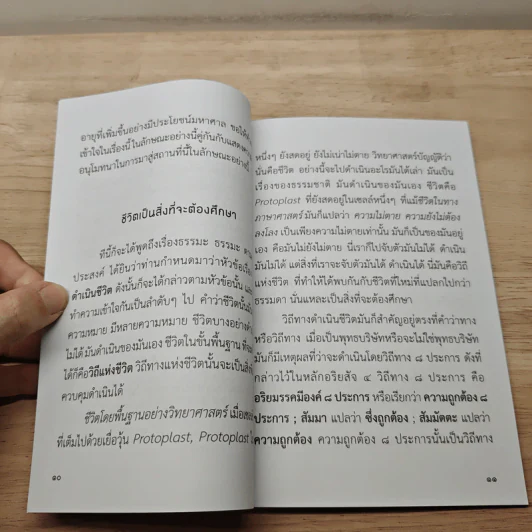 อายุที่เพิ่มขึ้นอย่างมีประโยชน์มหาศาล ขอให้
เข้าใจในเรื่องนี้ในลักษณะอย่างนี้คู่กันกับแสดง
อนุโมทนาในการมาสู่สถานที่นี้ในลักษณะอย่างนี้
ชีวิตเป็นสิ่งที่จะต้องศึกษา
ทีนี้ก็จะได้พูดถึงเรื่องธรรมะ ธรรมะ
ประสงค์ ได้ยินว่าท่านกำหนดมาว่าหัวข้อเรื่อง
ดำเนินชีวิต ดังนั้นก็จะได้กล่าวตามหัวข้อนั้น
ทำความเข้าใจกันเป็นลำดับๆ ไป คำว่าชีวิตนั้น
ความหมาย มีหลายความหมาย ชีวิตบางอย่าง
ไม่ได้ มันดำเนินของมันเอง ชีวิตในขั้นพื้นฐาน
ได้ก็คือวิถีแห่งชีวิต วิถีทางแห่งชีวิตนั้นจะเป็นสิ่ง
ควบคุมดำเนินได้
ชีวิตโดยพื้นฐานอย่างวิทยาศาสตร์
ที่เต็มไปด้วยเยื่อวุ้น Protoplast, Protoplast
๑๐
หนึ่งๆ ยังสดอยู่ ยังไม่เน่าไม่ตาย วิทยาศาสตร์บัญญัติว่า
นั่นคือชีวิต อย่างนี้จะไปดำเนินอะไรมันได้เล่า มันเป็น
เรื่องของธรรมชาติ มันดำเนินของมันเอง ชีวิตคือ
Protoplast ที่ยังสดอยู่ในเซลล์หนึ่งๆ ที่แม้ชีวิตในทาง
ภาษาศาสตร์ มันก็แปลว่า ความไม่ตาย ความยังไม่ต้อง
ลงโลง เป็นเพียงความไม่ตายเท่านั้น มันก็เป็นของมันอยู่
เอง คือมันไม่ยังไม่ตาย นี่เราก็ไปจับตัวมันไม่ได้ ดำเนิน
มันไม่ได้ แต่สิ่งที่เราจะจับตัวมันได้ ดำเนินได้ นี่มันคือวิถี
แห่งชีวิต ที่ทำให้ได้พบกันกับชีวิตที่ใหม่ที่แปลกไปกว่า
ธรรมดา นั่นแหละเป็นสิ่งที่จะต้องศึกษา
วิถีทางดำเนินชีวิตมันก็สำคัญอยู่ตรงที่คำว่าทาง
หรือวิถีทาง เมื่อเป็นพุทธบริษัทหรือจะไม่ใช่พุทธบริษัท
มันก็มีเหตุผลที่ว่าจะดำเนินโดยวิถีทาง ๘ ประการ ดังที่
กล่าวไว้ในหลักอริยสัจ ๔ วิถีทาง ๘ ประการ คือ
อริยมรรคมีองค์ ๘ ประการ หรือเรียกว่า ความถูกต้อง ๘
ประการ ; สัมมา แปลว่า ซึ่งถูกต้อง ; สัมมัตตะ แปลว่า
ความถูกต้อง ความถูกต้อง ๘ ประการนั้นเป็นวิถีทาง
๑๑